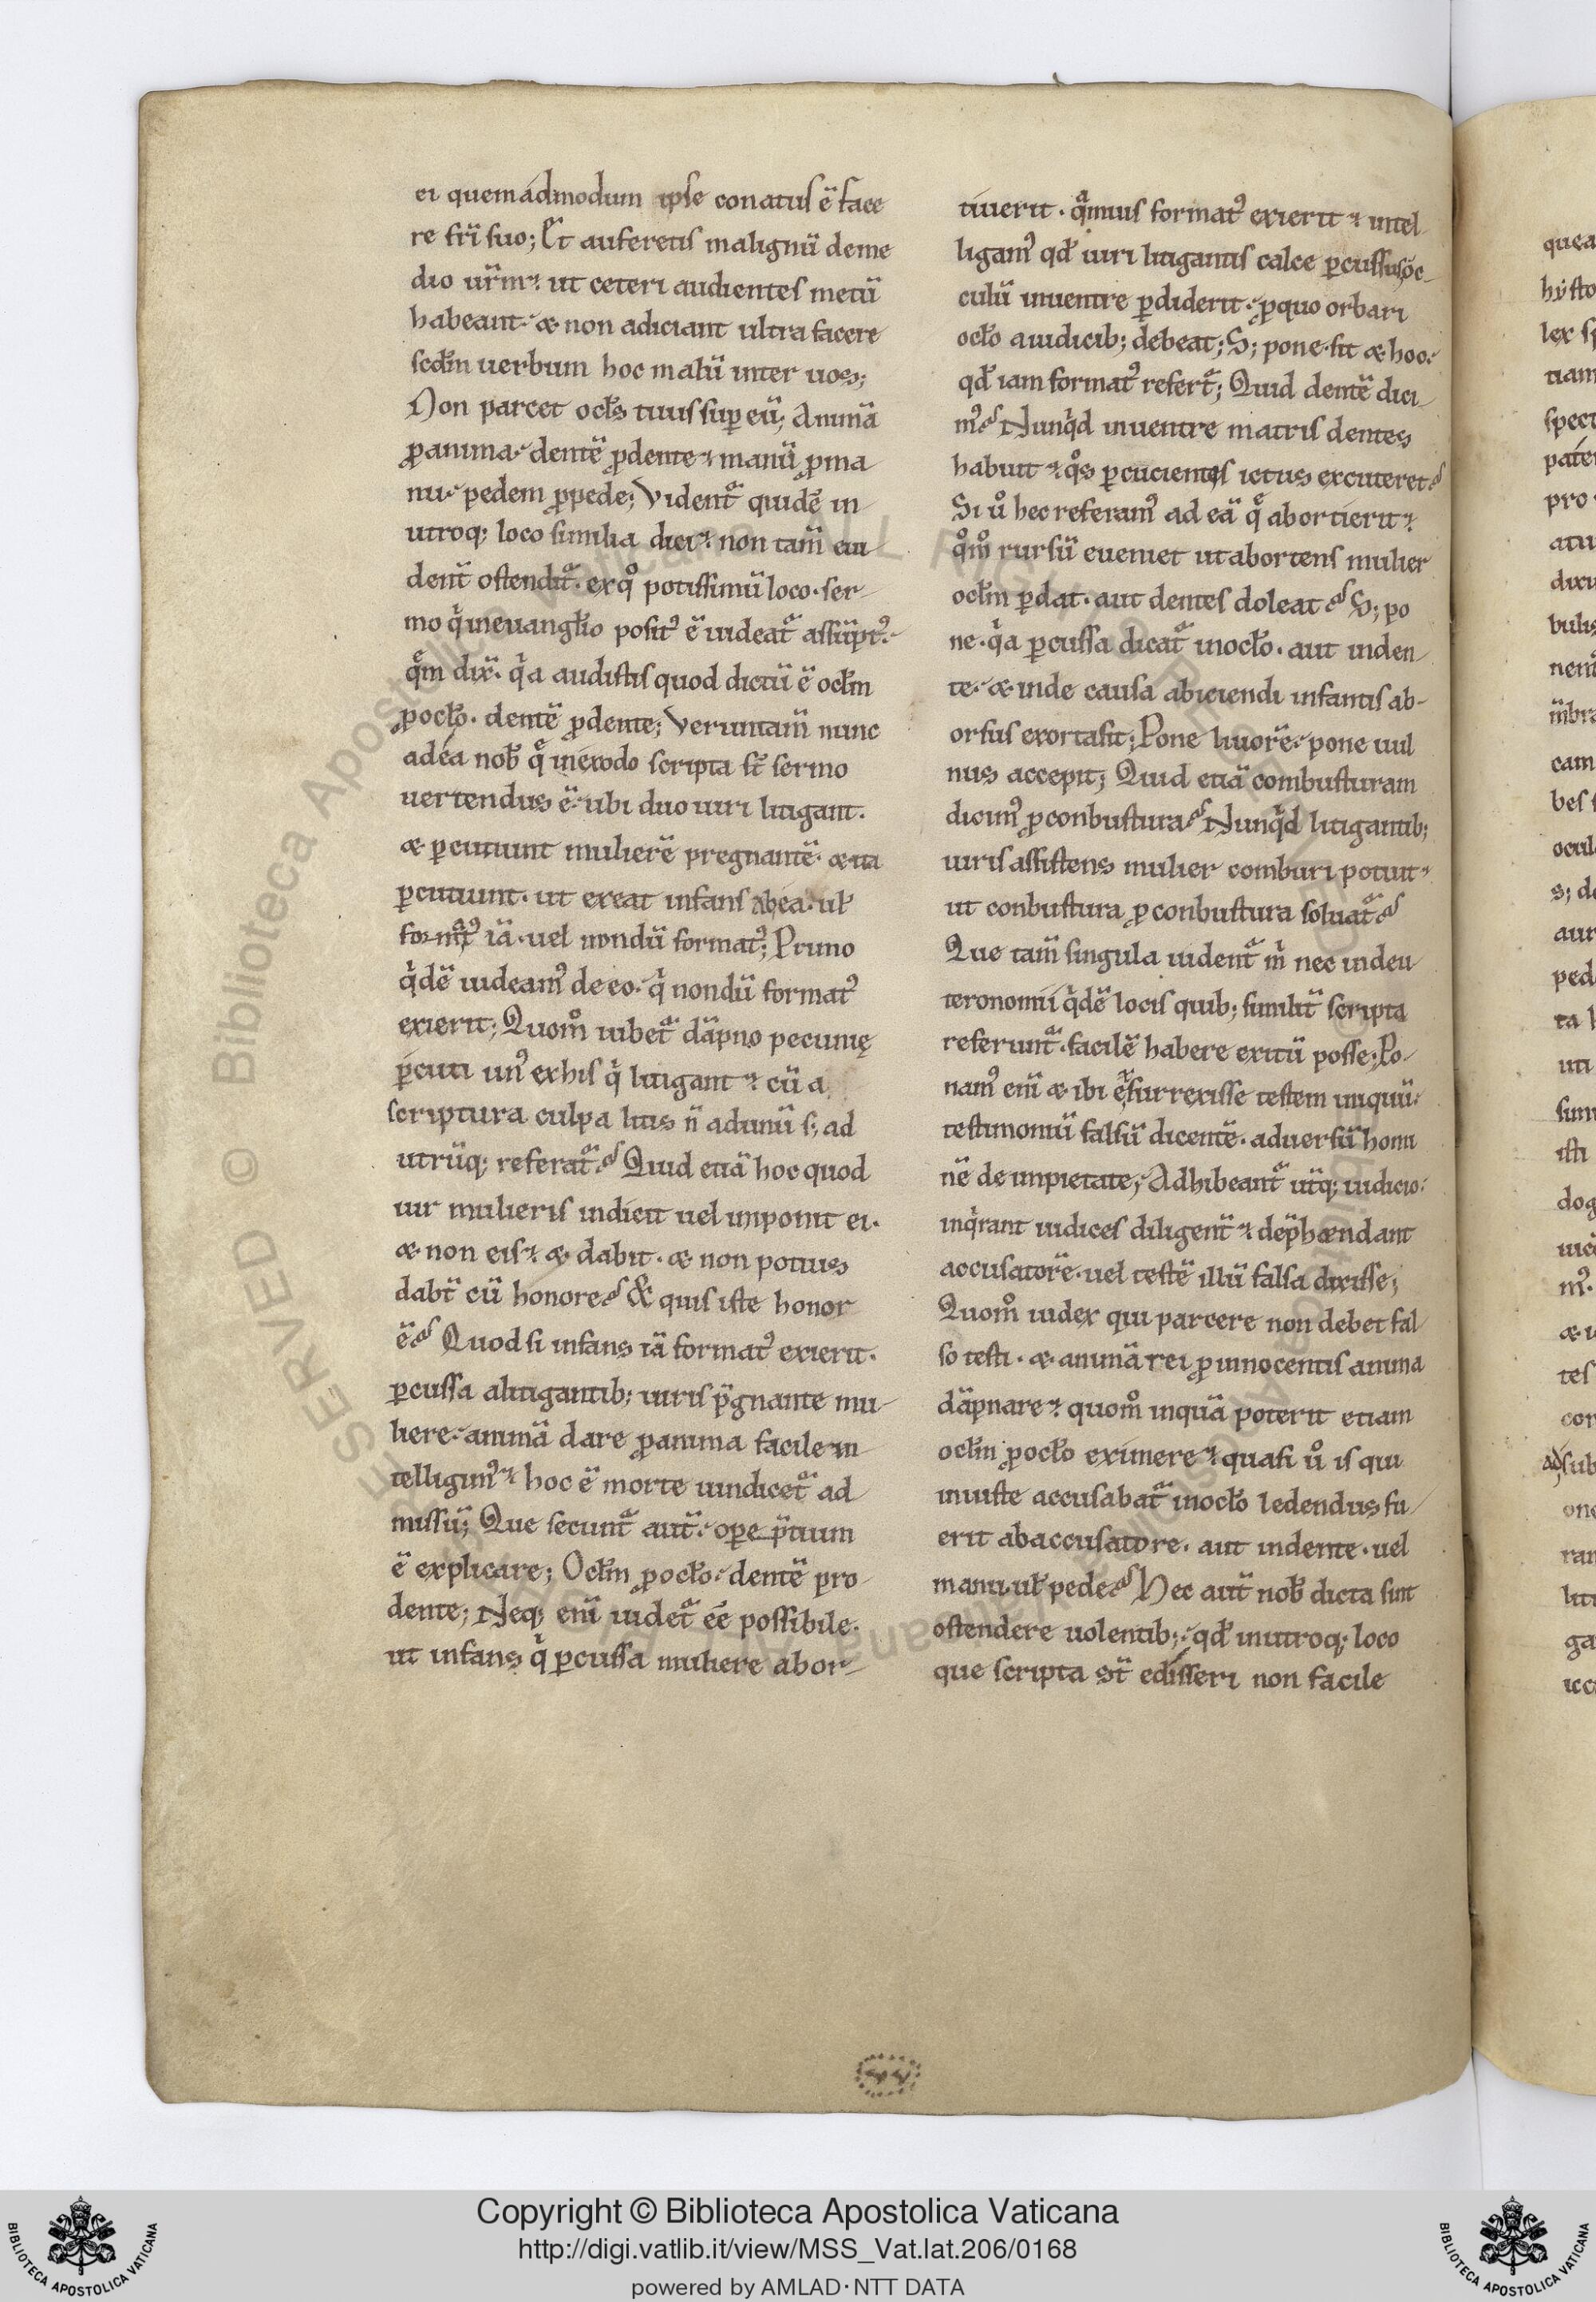 ei quemádmodum ipse conatus ē face
re fr̄i suo; Et auferetis malignū deme
dio ur̄m; ut ceteri audientes metū
habeant. & non adiciant ultra facere
scd̄m uerbum hoc malū inter uos;
Non parcet ocl̄s tuus sup eū; Animā
panima. dentē pdente. manū pma
nu. pedem ppede; Videnť quidē in
utroq; loco similia dici. non tam̄ eui
dent̄ ostendiť. exqͦ potissimū loco. ser
mo qͥ ineuangl̄io positꝰ ē uideať assūptꝰ.
qͫm dix̄. qͥa audistis quod dictū ē ocl̄m
pocl̄o. dentē pdente; Veruntam̄ nunc
adéa nob̄ qͤ inéxodo scripta st̄ sermo
uertendus ē. ubi duo uiri litigant.
& pcutiunt mulierē pregnantē. & ita
pcutiunt. ut exeat infans abea. ul̄
formatꝰ iā. uel nondū formatꝰ; Primo
qͥdē uideamꝰ de eo. qͥ nondū formatꝰ
exierit; Quom̊ iubeť dāpno pecunię
pcuti unꝰ exhis qͥ litigant. cū a
scriptura culpa litis n̄ adunū s; ad
utrūq; referať? Quid etiā hoc quod
uir mulieris indicit uel inponit ei.
& non eis. & dabit. & non potius
dabť cū honore? & quis iste honor
ē? Quod si infans iā formatꝰ exierit.
pcussa alitigantib; uiris p̄gnante mu
liere. animā dare panima facile in
telligimꝰ. hoc ē morte uindiceť ad
missū; Que secunť aut̄. ope p̄tium
ē explicare; Ocl̄m pocl̄o. dentē pro
dente; Neq; eni̅ uideť eē possibile.
ut infans qͥ pcussa muliere abor
tiuerit. qͣmius formatꝰ exierit. intel
ligamꝰ qd̄ uiri litigantis calce pcussus oc
culū inuentre pdiderit. pquo orbari
ocl̄o aiudicib; debeat; S; pone. sit & hoc.
qd̄ iam formatꝰ referť; Quid dentē dici
mꝰ? Nunqͥd inuentre matris dentes
habuit. qͦs pcucientis ictus excuteret?
Si ů hec referamꝰ ad eā qͤ abortierit.
qͦm̊ rursū eueniet ut abortens mulier
ocl̄m pdat. aut dentes doleat? S; po
ne. qͥa pcussa dicať inocl̄o. aut inden
te. & inde causa abiciendi infantis ab
orsus exorta sit; Pone liuorē. pone uul
nus accepit; Quid etiā combusturam
dicimꝰ pconbustura? Nunqͥd litigantib;
uiris assistens mulier comburi potuit.
ut conbustura pconbustura soluať?
Que tam̄ singula uidenť m̄ nec indeu
teronomii qͥdē locis quib; similiť scripta
referunť. facilē habere exitū posse; Po
namꝰ eni̅ & ibi ēsurrexisse testem iniquū.
testimoniū falsū dicentē. aduersū homi
nē de inpietate; Adhibeanť ut̄q; iudicio.
inqͥrant iudices diligent̄. dep̄hendant
accusatorē. uel testē illū falsa dixisse;
Quom̊ iudex qui parcere non debet fal
so testi. & animā rei pinnocentis anima
dāpnare. quom̊ inquā poterit etiam
ocl̄m pocl̄o eximere. quasi ů is qui
iniuste accusabať inocl̄o ledendus fu
erit abaccusatore. aut indente. uel
manu. ul̄ pede? Hec aut̄ nob̄ dicta sint
ostendere uolentib;. qd̄ inutroq; loco
que scripta st̄ edisseri non facile
Copyright © Biblioteca Apostolica Vaticana
http://digi.vatlib.it/view/MSS_Vat.lat.206/0168
powered by AMLAD·NTT DATA